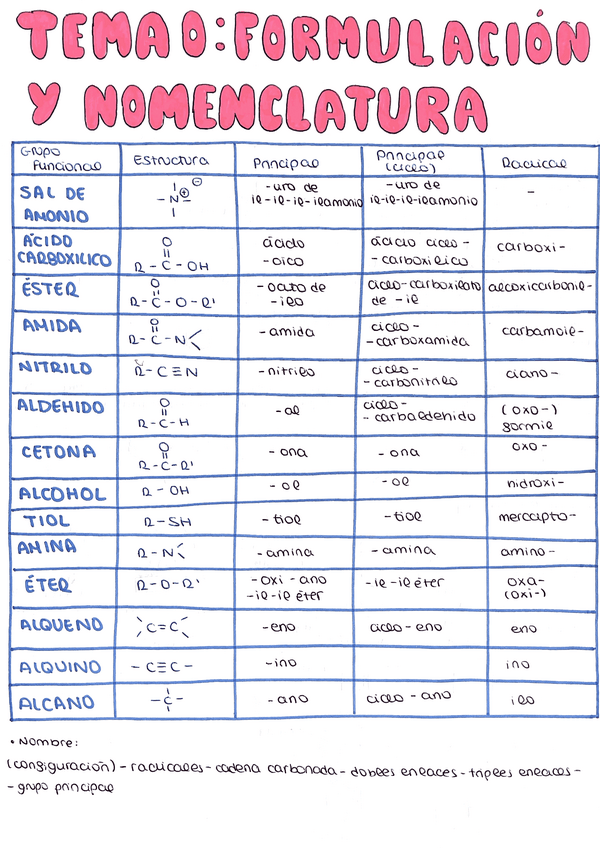 TEMA 0: FORMULACIÓN
Y NOMENCLATURA
Grupo Funcional | Estructura | Principal | Principal (ciclo) | Radical
SAL DE AMONIO | - N - ⊕ ⊖ | -uro de il-il-il-ilamonio | -uro de il-il-il-ilamonio | -
ÁCIDO CARBOXILICO | R - C - OH || O | ácido -oico | ácido ciclo - - carboxílico | carboxi-
ÉSTER | R - C - O - R' || O | - oato de - ilo | ciclo-carboxilato de - il | alcoxicarbonil-
AMIDA | R - C - N || O | - amida | ciclo - - carboxamida | carbamoil-
NITRILO | R - C ≡ N | - nitrilo | ciclo - - carbonitrilo | ciano-
ALDEHIDO | R - C - H || O | - al | ciclo - - carbaldehido | (oxo-) formil
CETONA | R - C - R' || O | - ona | - ona | oxo -
ALCOHOL | R - OH | - ol | - ol | hidroxi-
TIOL | R - SH | - tiol | - tiol | mercapto-
AMINA | R - N | - amina | - amina | amino -
ÉTER | R - O - R' | - oxi - ano -il-il éter | -il-il éter | oxa- (oxi-)
ALQUENO | C = C | -eno | ciclo - eno | eno
ALQUINO | - C ≡ C - | -ino | ino
ALCANO | - C - | - ano | ciclo - ano | ilo
• Nombre:
(configuración) - radicales - cadena carbonada - dobles enlaces - triples enlaces -
- grupo principal